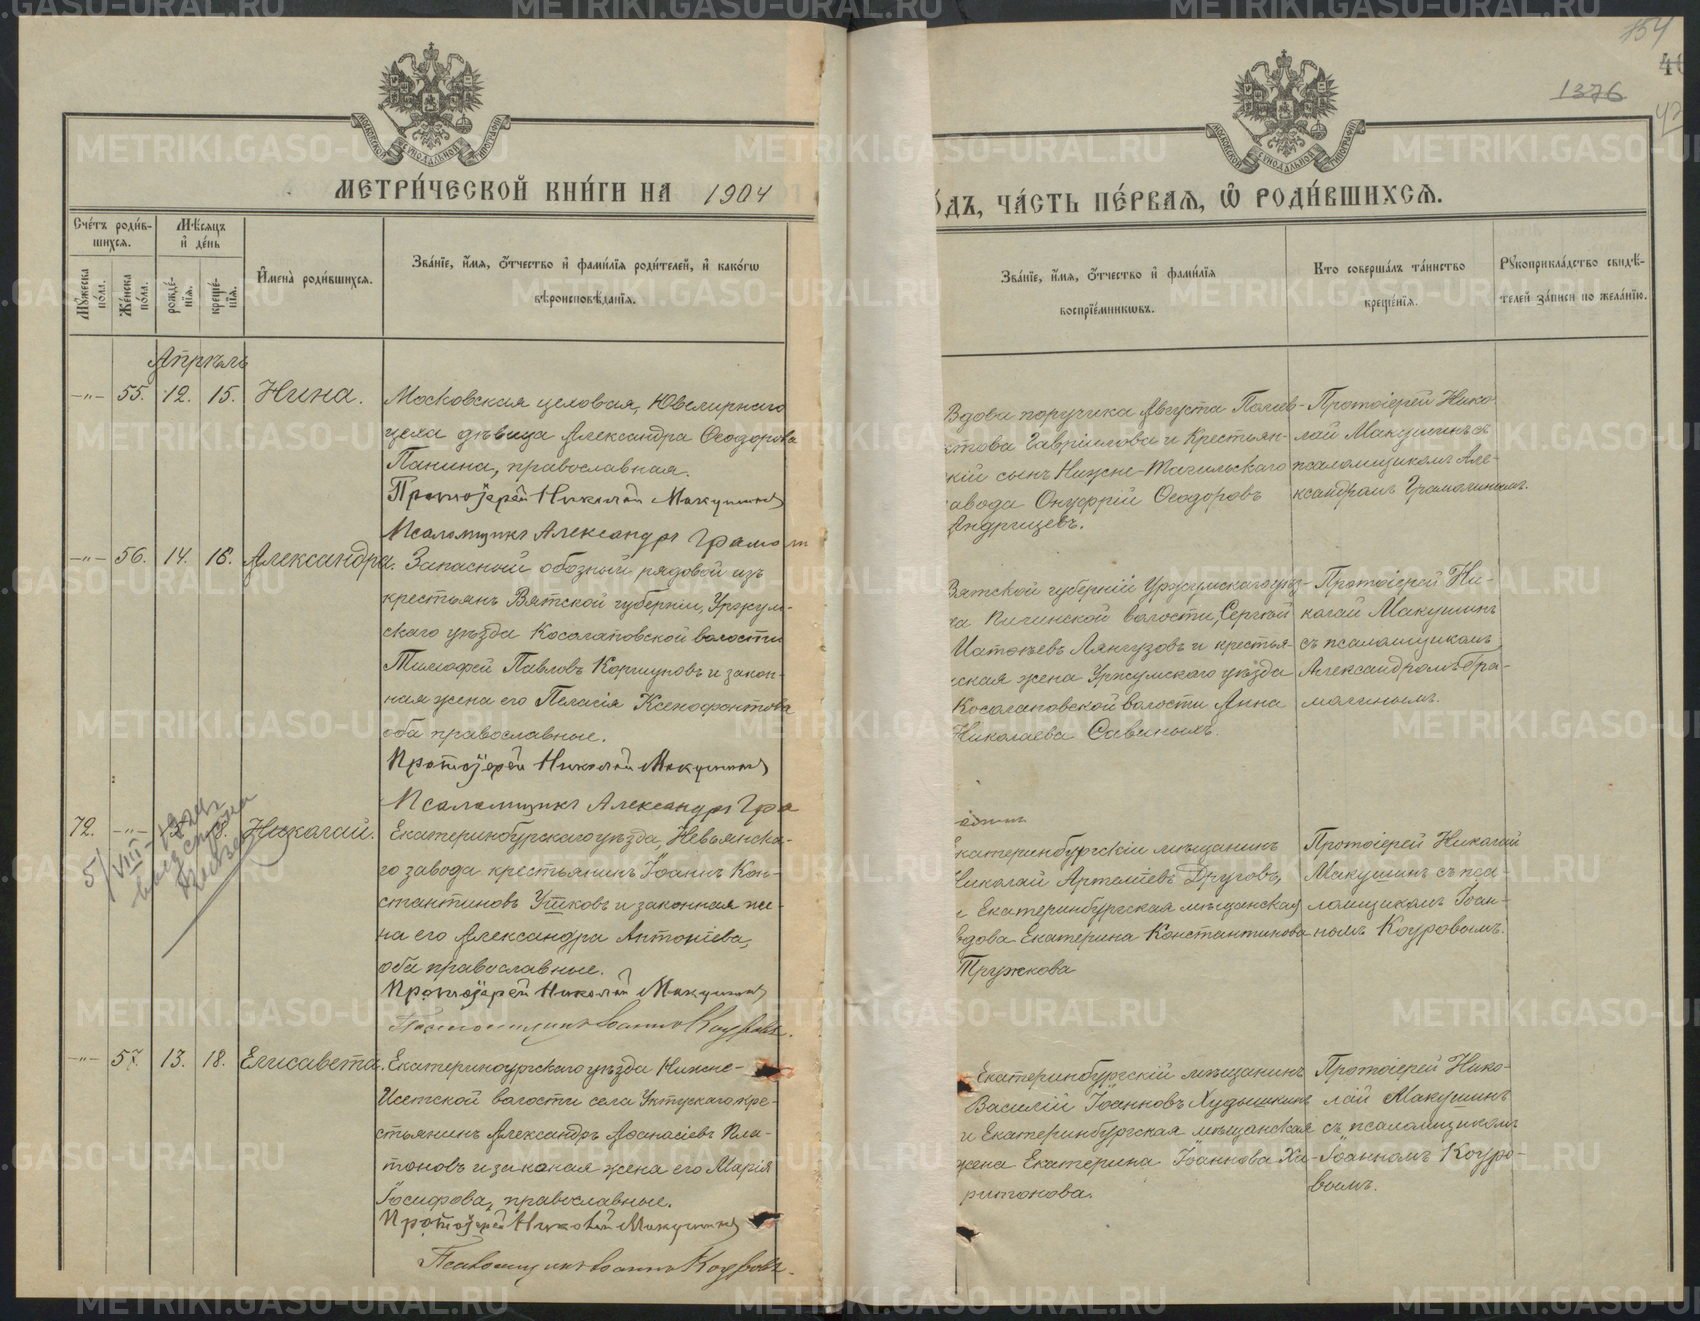 154
1376
МОСКОВСКОЙ СѴНОДАЛЬНОЙ ТИПОГРАФІИ
МОСКОВСКОЙ СѴНОДАЛЬНОЙ ТИПОГРАФІИ
МЕТРИ́ЧЕСКОЙ КНИ́ГИ НА 1904
ЧА́СТЬ ПЕ́РВАЯ, Ѽ РОДИ́ВШИХСЯ.
Сче́тъ роди́в-
шихся.
Мꙋ́жеска по́ла.
Же́нска по́ла.
Мѣ́сяцъ
и҆ де́нь
рожде́-
нїя.
креще́-
нїя.
И҆мена̀ роди́вшихся.
Зва́нїе, и҆́мя, ѻ҆́тчество и҆ фами́лїя роди́телей, и҆ како́гѡ
вѣроисповѣ́данїя.
Зва́нїе, и҆́мя, ѻ҆́тчество и҆ фами́лїя
воспрїе́мникѡвъ.
Кто соверша́лъ та́инство
креще́нїя.
Рꙋкоприкла́дство свидѣ́-
телей за́писи по жела́нїю.
Апрѣль
-"- 55. 12. 15. Нина.
Московская цеховая, Ювелирнаго
цеха дѣвица Александра Ѳеодорова
Панина, православная.
Протоіерей Николай Макушинъ
Псаломщикъ Александръ Грамот
Вдова поручика Августа
Гавріилова и Крестьян-
кій сынъ Нижне-Тагильскаго
авода Онуфрій Ѳеодоровъ
Андрицевъ.
Протоіерей Нико-
лай Макушинъ съ
псаломщикомъ Але-
ксандромъ
-"- 56. 14. 16. Александра.
Запасный обозный рядовой изъ
крестьянъ Вятской губерніи, Уржум-
скаго уѣзда Косолаповской волости
Тимофей Павловъ Коршуновъ и закон-
ная жена его Пелагія Ксенофонтова
оба православные.
Протоіерей Николай Макушинъ
Псаломщикъ Александръ Гра
Вятской губерніи Уржумскаго уѣз-
волости, Сергѣй
Лянгузовъ и крестья-
нская жена Уржумскаго уѣзда
Косолаповской волости Анна
Николаева Савиныхъ.
Протоіерей Ни-
колай Макушинъ
съ псаломщикомъ
Александромъ Гра-
72. -"- Николай.
Екатеринбургскаго уѣзда, Невьянска-
го завода крестьянинъ Іоаннъ Кон-
стантиновъ Ушковъ и законная же-
на его Александра Антоніева,
оба православные.
Протоіерей Николай Макушинъ
Псаломщикъ Іоаннъ Коуровъ.
Екатеринбургскій мѣщанинъ
Николай Артеміевъ Друговъ,
и Екатеринбургская мѣщанская
вдова Екатерина Константинова
Тружкова
Протоіерей Николай
Макушинъ съ пса-
ломщикомъ Іоан-
номъ Коуровымъ.
-"- 57. 13. 18. Елисавета.
Екатеринбургскаго уѣзда Нижне-
Исетской волости села Уктускаго кре-
стьянинъ Александръ Аѳанасіевъ Пла-
тоновъ и законая жена его Марія
Іосифова, православные.
Протоіерей Николай Макушинъ
Псаломщикъ Іоаннъ Коуровъ.
Екатеринбургскій мѣщанинъ
Василій Іоанновъ Худышкинъ
и Екатеринбургская мѣщанская
жена Екатерина Іоаннова Ха-
ритонова.
Протоіерей Нико-
лай Макушинъ
съ псаломщикомъ
Іоанномъ Коуро-
вымъ.
METRIKI.GASO-URAL.RU